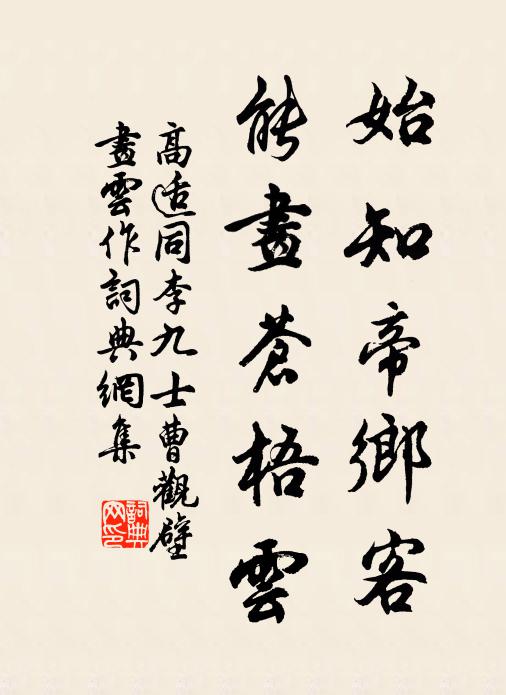 始知帝鄉客
能畫蒼梧雲
高适同李九士曹觀壁
畫雲作詞典網集
詞典网印